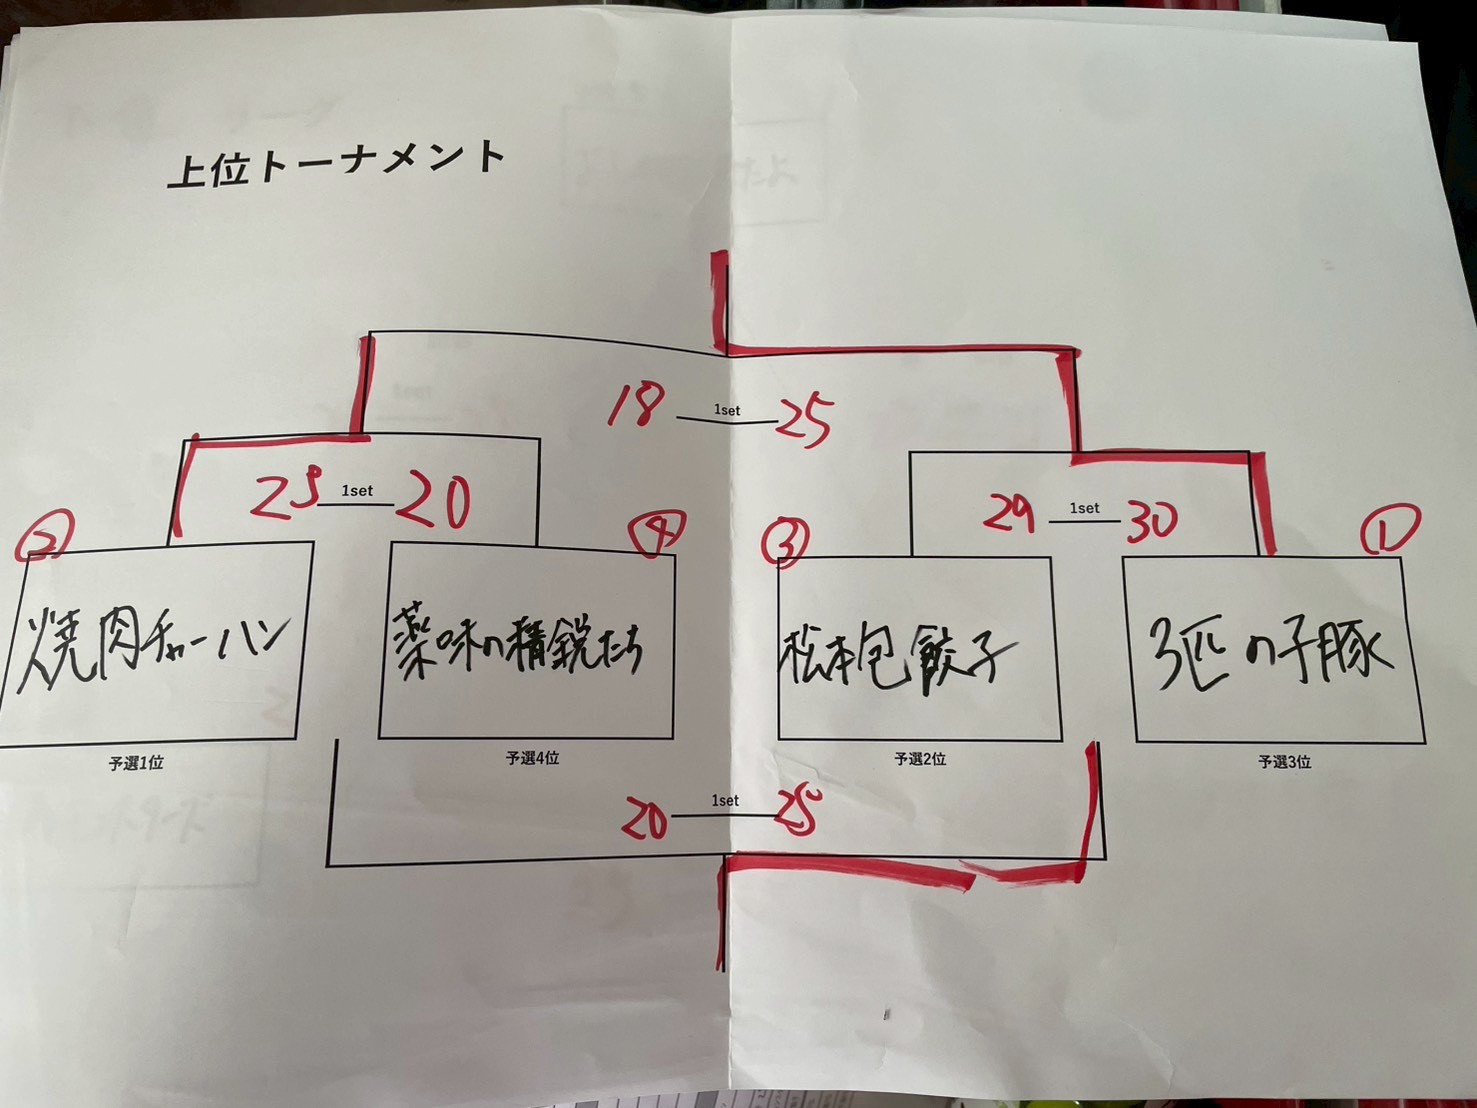 上位トーナメント
18 1set 25
25 1set 20
29 1set 30
② ④ ③ ①
焼肉チャーハン
薬味の精鋭たち
松本包餃子
3匹の子豚
予選1位
予選4位
予選2位
予選3位
20 1set 25